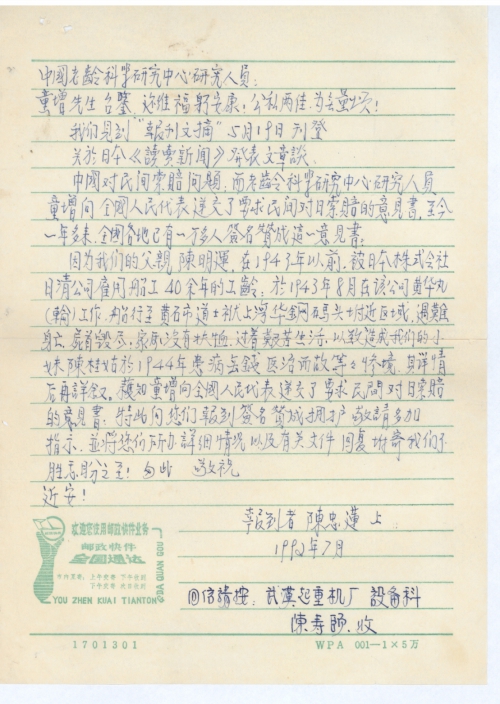 中國老齡科學研究中心研究人員：
童增先生台鑒 近維福躬安康！公私兩佳，為 量頌！
我们見到"報刊文摘"5月19日刊登
关於日本《讀賣新闻》发表文章談、
中國对民间索賠问題，而老龄科學研究中心研究人員
童增向全國人民代表递交了要求民间对日索賠的意見書，至今
一年多來，全國各地已有一万多人签名賛成這一意見書。
因为我们的父親陳明運，在1943年以前，被日本株式会社
日清公司雇用船工40余年的工齡，於1943年8月在該公司 华丸
(輪)工作，船行至黄石市道士袱上 华金网码头附近区域，遇難
身亡，屍首毀尽，屍 没有 ，过着艱苦生活，以致造成我们的小
妹陳桂姑於1944年患病無錢医治而故等々惨境，其詳情
后再詳叙。获知童增向全國人民代表递交了要求民間对日索賠
的意見書，特此向您们報到签名賛成拥护，敬請多加
指示，並将您们所办詳細情况以及有关文件回复 寄我们不
胜感盼之至！匆此 敬祝
近安！
報到者 陳忠蓮 上
1992年7月
回信請按：武漢起重机厂設备科
陳寿 收
欢迎您使用邮政快件业务
邮政快件
全国通达
YOU ZHEN KUAI JIAN
TIANTONG
DA QUAN GUO
1701301 WPA 001—1×5万